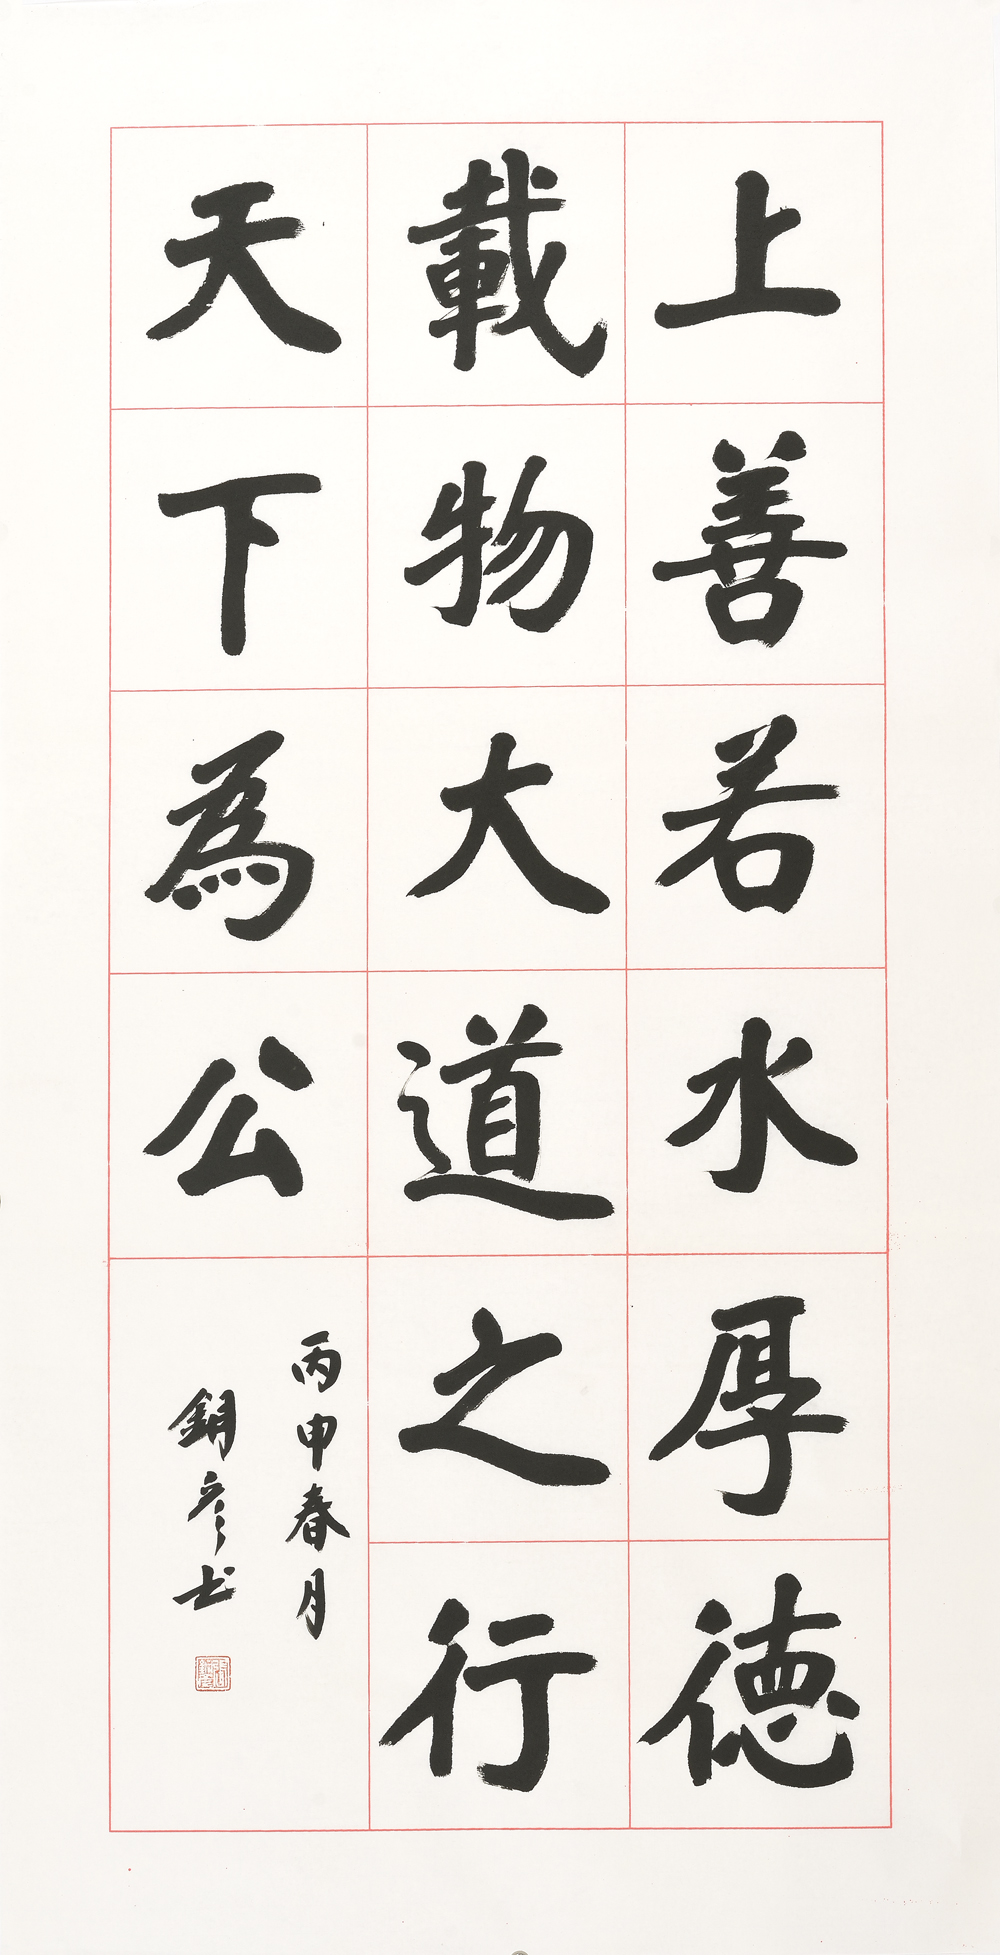 上善若水厚德
載物大道之行
天下為公
丙申春月
鈅彦书